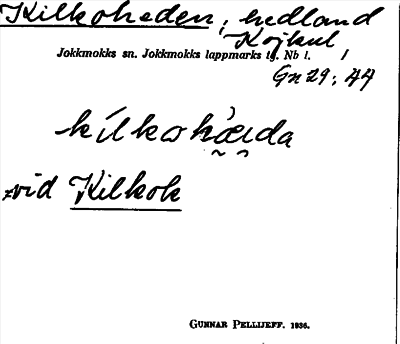 Kilkoheden, hedland
Kojkul,
Jokkmokks sn. Jokkmokks lappmarks tg. Nb l.
Gn 29: 44
vid Kilkok
GUNNAR PELLIJEFF. 1936.